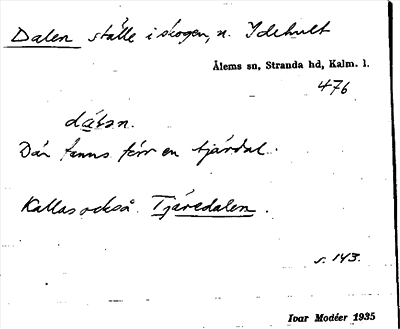 Dalen ställe i skogen, n. Idehult
Ålems sn, Stranda hd, Kalm. l.
476
dá̱lən.
Där fanns förr en tjärdal.
Kallas också Tjäredalen.
s. 143.
Ivar Modéer 1935